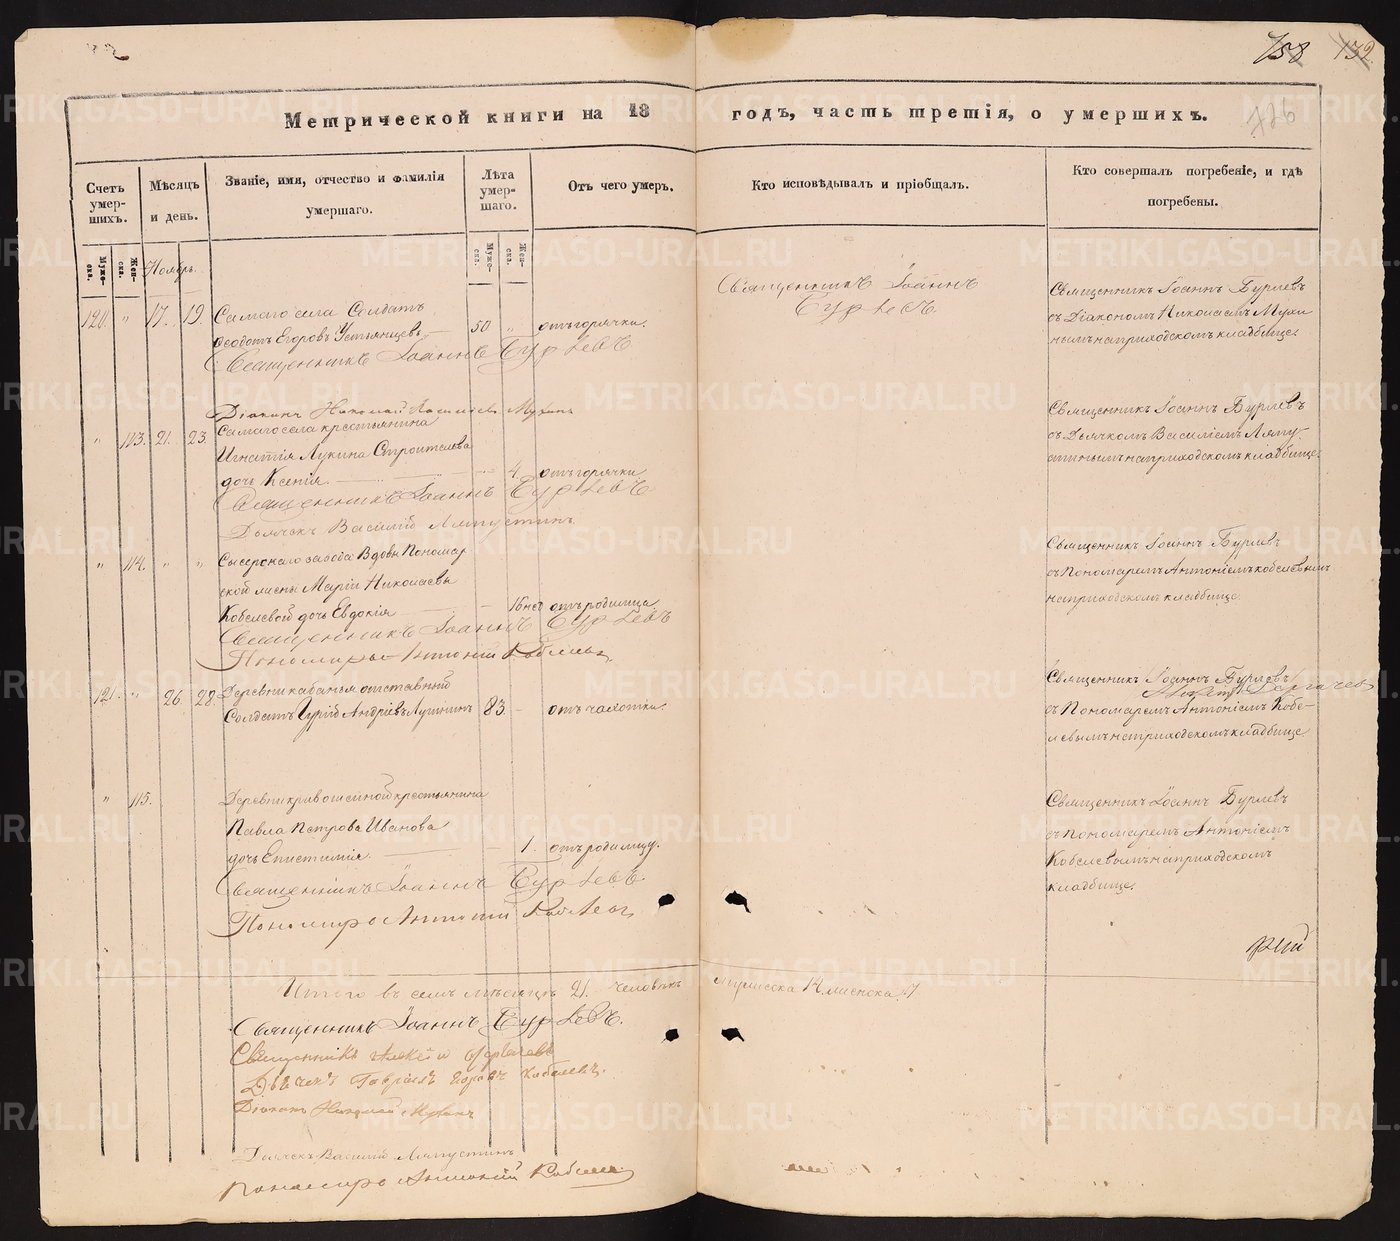 758 132
726
Метрической книги на 18 годъ, часть третія, о умершихъ.
Счетъ умер-шихъ.
Мѣсяцъ и день.
Званіе, имя, отчество и фамилія умершаго.
Лѣта умер-шаго.
Отъ чего умеръ.
Кто исповѣдывалъ и пріобщалъ.
Кто совершалъ погребеніе, и гдѣ погребены.
Муже-ска. Жен-ска. Ноябрь. Муже-ска. Жен-ска.
120. " 17. 19. Самаго села Солдатъ
Ѳеодотъ Егоровъ Устьянцевъ 50 " отъ горячки.
Священникъ Іоаннъ Бурлевъ
Священникъ Іоаннъ
Бурлевъ
Священникъ Іоаннъ Бурлевъ
съ Діакономъ Николаемъ Мухи
нымъ на приходскомъ кладбище.
Діаконъ Николай Васильевъ Мухинъ
" 113. 21. 23. Самаго села крестьянина
Игнатія Лукина Строителева
дочь Ксенія. 4 отъ горячки
Священникъ Іоаннъ Бурлевъ
Дьячекъ Василій Ляпустинъ
Священникъ Іоаннъ Бурлевъ
съ Дьячкомъ Василіемъ Ляпу-
стинымъ на приходскомъ кладбище.
" 114. " " Сысерскаго завода Вдовы Пономар
ской жены Маріи Николаевы
Кобелевой дочь Евдокія 16 нед отъ родимца
Священникъ Іоаннъ Бурлевъ
Пономарь Антоній Кобелевъ
Священникъ Іоаннъ Бурлевъ
съ Пономаремъ Антоніемъ Кобелевымъ
на приходскомъ кладбище.
121. " 26. 28. Деревни Кабаньей отставный
Солдатъ Гурій Андріевъ 83 - отъ чахотки.
Священникъ Іоаннъ Бурлевъ
съ Пономаремъ Антоніемъ Кобе-
левымъ на приходскомъ кладбище
" 115. Деревни Кривошеиной крестьянина
Павла Петрова Иванова
дочь Епистимія. 1. отъ родимцу.
Священникъ Іоаннъ Бурлевъ
Пономарь Антоній Кобелевъ
Священникъ Іоаннъ Бурлевъ
съ Пономаремъ Антоніемъ
Кобелевымъ на приходскомъ
кладбище.
Итого въ семъ мѣсяцѣ 21. человѣкъ мужеска 14. женска 7
Священникъ Іоаннъ Бурлевъ.
Священникъ Алексій
Дьячекъ Гавріилъ Егоровъ Кобелевъ.
Діаконъ Николай Мухинъ
Дьячекъ Василій Ляпустинъ
Пономарь Антоній Кобелевъ
METRIKI.GASO-URAL.RU